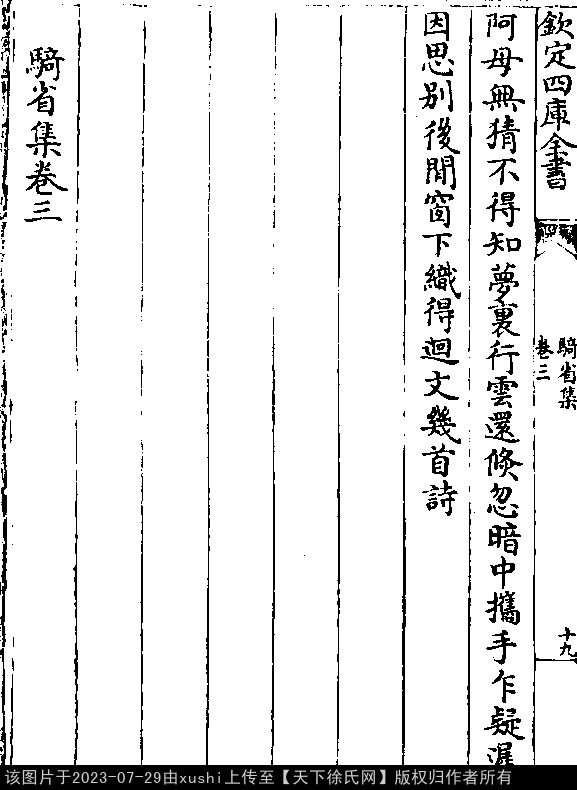 欽定四庫全書
騎省集
卷三
十九
阿母無猜不得知夢裏行雲還倐忽暗中攜手乍疑遲
因思别後閒窗下織得迴文幾首詩
騎省集卷三
该图片于2023-07-29由xushi上传至【天下徐氏网】版权归作者所有